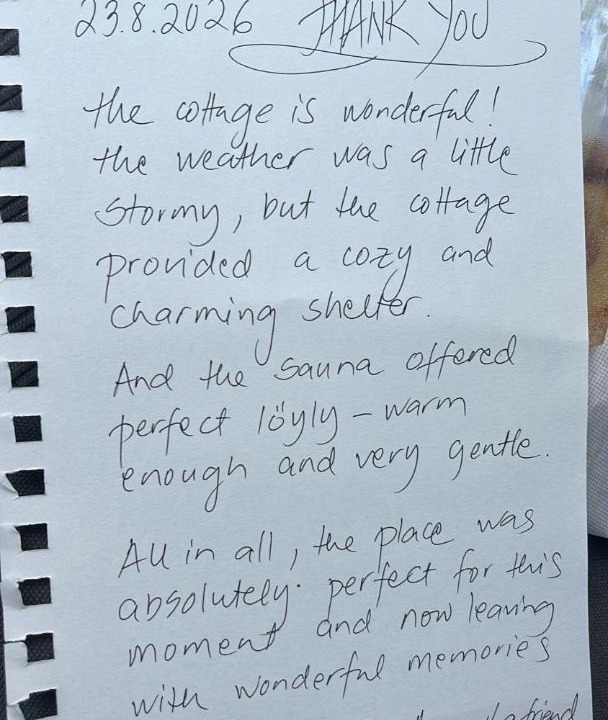 23.8.2026 THANK YOU
the cottage is wonderful!
the weather was a little
stormy, but the cottage
provided a cozy and
charming shelter.
And the sauna offered
perfect löyly – warm
enough and very gentle.
All in all, the place was
absolutely perfect for this
moment and now leaving
with wonderful memories
friend